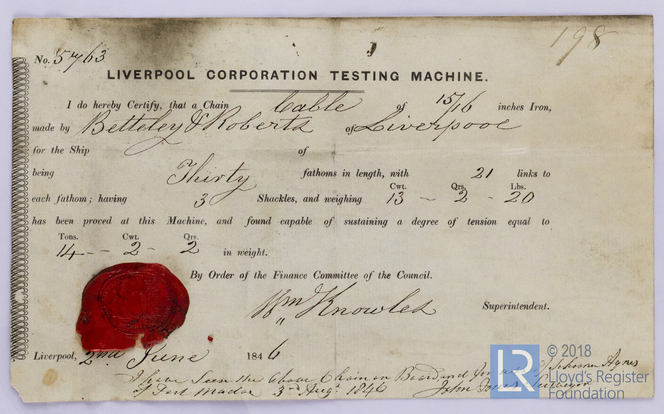 198
No. 5763
LIVERPOOL CORPORATION TESTING MACHINE.
I do hereby Certify, that a Chain Cable of 15/16 inches Iron,
made by Betteley & Roberts of Liverpool
for the Ship of
being Thirty fathoms in length, with 21 links to
each fathom; having 3 Shackles, and weighing Cwt. 13 - Qrs. 2 - Lbs. 20
has been proved at this Machine, and found capable of sustaining a degree of tension equal to
Tons. Cwt. Qrs.
14 - 2 - 2 in weight.
By Order of the Finance Committee of the Council.
Wm Knowles Superintendent.
Liverpool, 2nd June 1846
I have Seen the above Chain on Board and for Schooner Agnes
of Port Madoc 3rd Augt 1846 John
LR © 2018
Lloyd's Register
Foundation